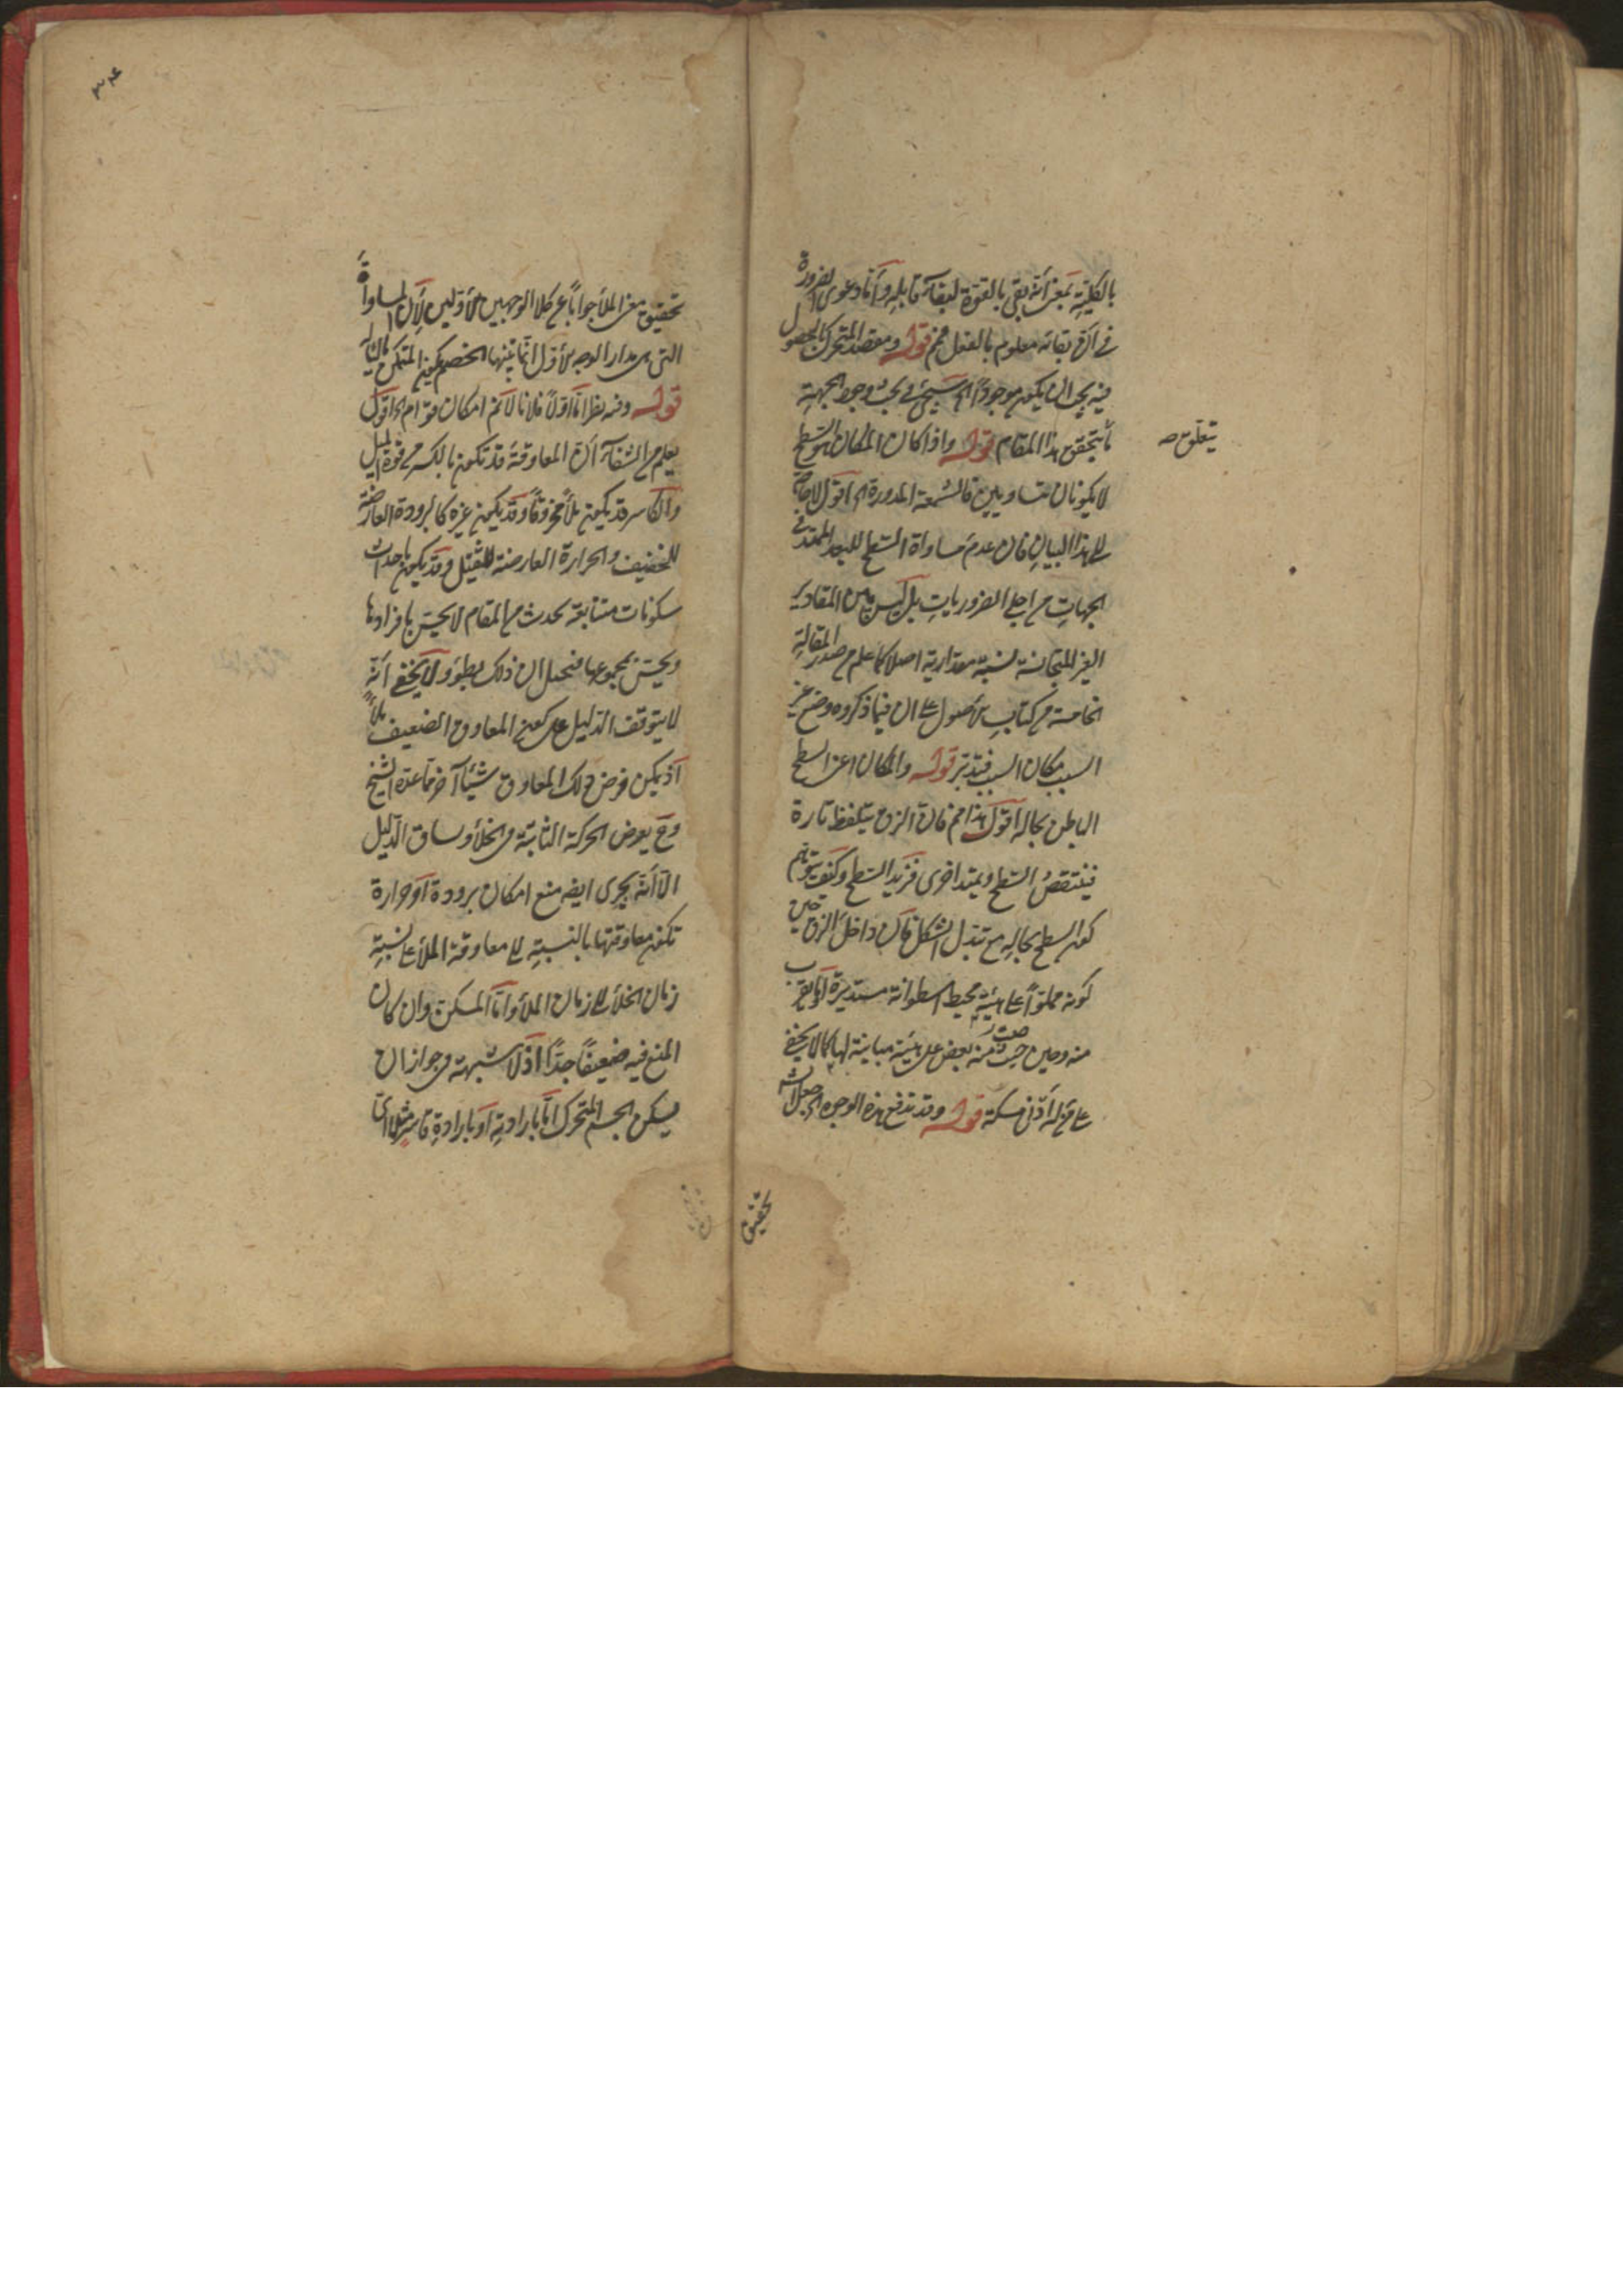 بالكلية بمعنى أنه بقى بالقوة لبقاء قابله وأما دعوى الضرورة
في بقائه معلوم بالفعل قوله ومقصد المتحرك بالحصول
فيه يجب ان يكون موجوداً سيجئ في بحث وجود الجهة
ما يتحقق هذا المقام قوله واذا كان المكان هو السطح
يتعلق صه
لا يكونان متساويين فالشمعة المدورة اه اقول لا حاجة
الى هذا البيان فان عدم مساواة السطح للبعد الممتد في
الجهات من اجلى الضروريات بل ليس بين المقادير
الغير المتجانسة نسبة مقدارية اصلا كما علم من صدر المقالة
الخامسة من كتاب الأصول على ان فيما ذكروه وضع غير
السبب مكان السبب فتدبر قوله والمكان اعنى السطح
الباطن بحاله اقول هذا مم فان الزق تارة
فينتقص السطح ويمتد اخرى فيزيد السطح وكيف يتوهم
كون السطح بحاله مع تبدل الشكل فان داخل الزق حين
كونه مملواً على هيئة محيط اسطوانة مستديرة أو ما يقرب
منه وحين صب منه بعض على هيئة مباينة لها كما لا يخفى
على من له أدنى مسكة قوله وقد تدفع هذه الوجوه اه جعل
تحقيق
٣٤
تحقيق معنى الملأ جواباً عن كلا الوجهين الأولين لأن المساواة
التى هى مدار الوجه الأول انما يثبتها الخصم بكون المتمكن مالئاً
قوله وفيه نظر اما اولاً فلانا لا نم امكان قوام اه اقول
يعلم من الشفاء أن المعاوقة قد تكون بالكسر من قوة الميل
والكاسر قد يكون ملأ مخروقاً وقد يكون غيره كالبرودة العارضة
للخفيف والحرارة العارضة للثقيل وقد يكون باحداث
سكونات متتابعة تحدث من المقام لا يحس بافرادها
ويحس بمجموعها فيتخيل ان ذلك بطؤ ولا يخفى أنه
لا يتوقف الدليل على كون المعاوق الضعيف ملأ
اذ يمكن فرض ذلك المعاوق شيئا آخر مما عده الشيخ
وح يعرض الحركة الثانية في الخلأ وساق الدليل
الا أنه يجرى ايضا منع امكان برودة أو حرارة
تكون معاوقتها بالنسبة الى معاوقة الملأ على نسبة
زمان الخلأ الى زمان الملأ واما المسكن وان كان
المنع فيه ضعيفاً جداً اذ لا شبهة في جواز ان
يسكن الجسم المتحرك اما بارادته أو بارادة قاسر مثلا في